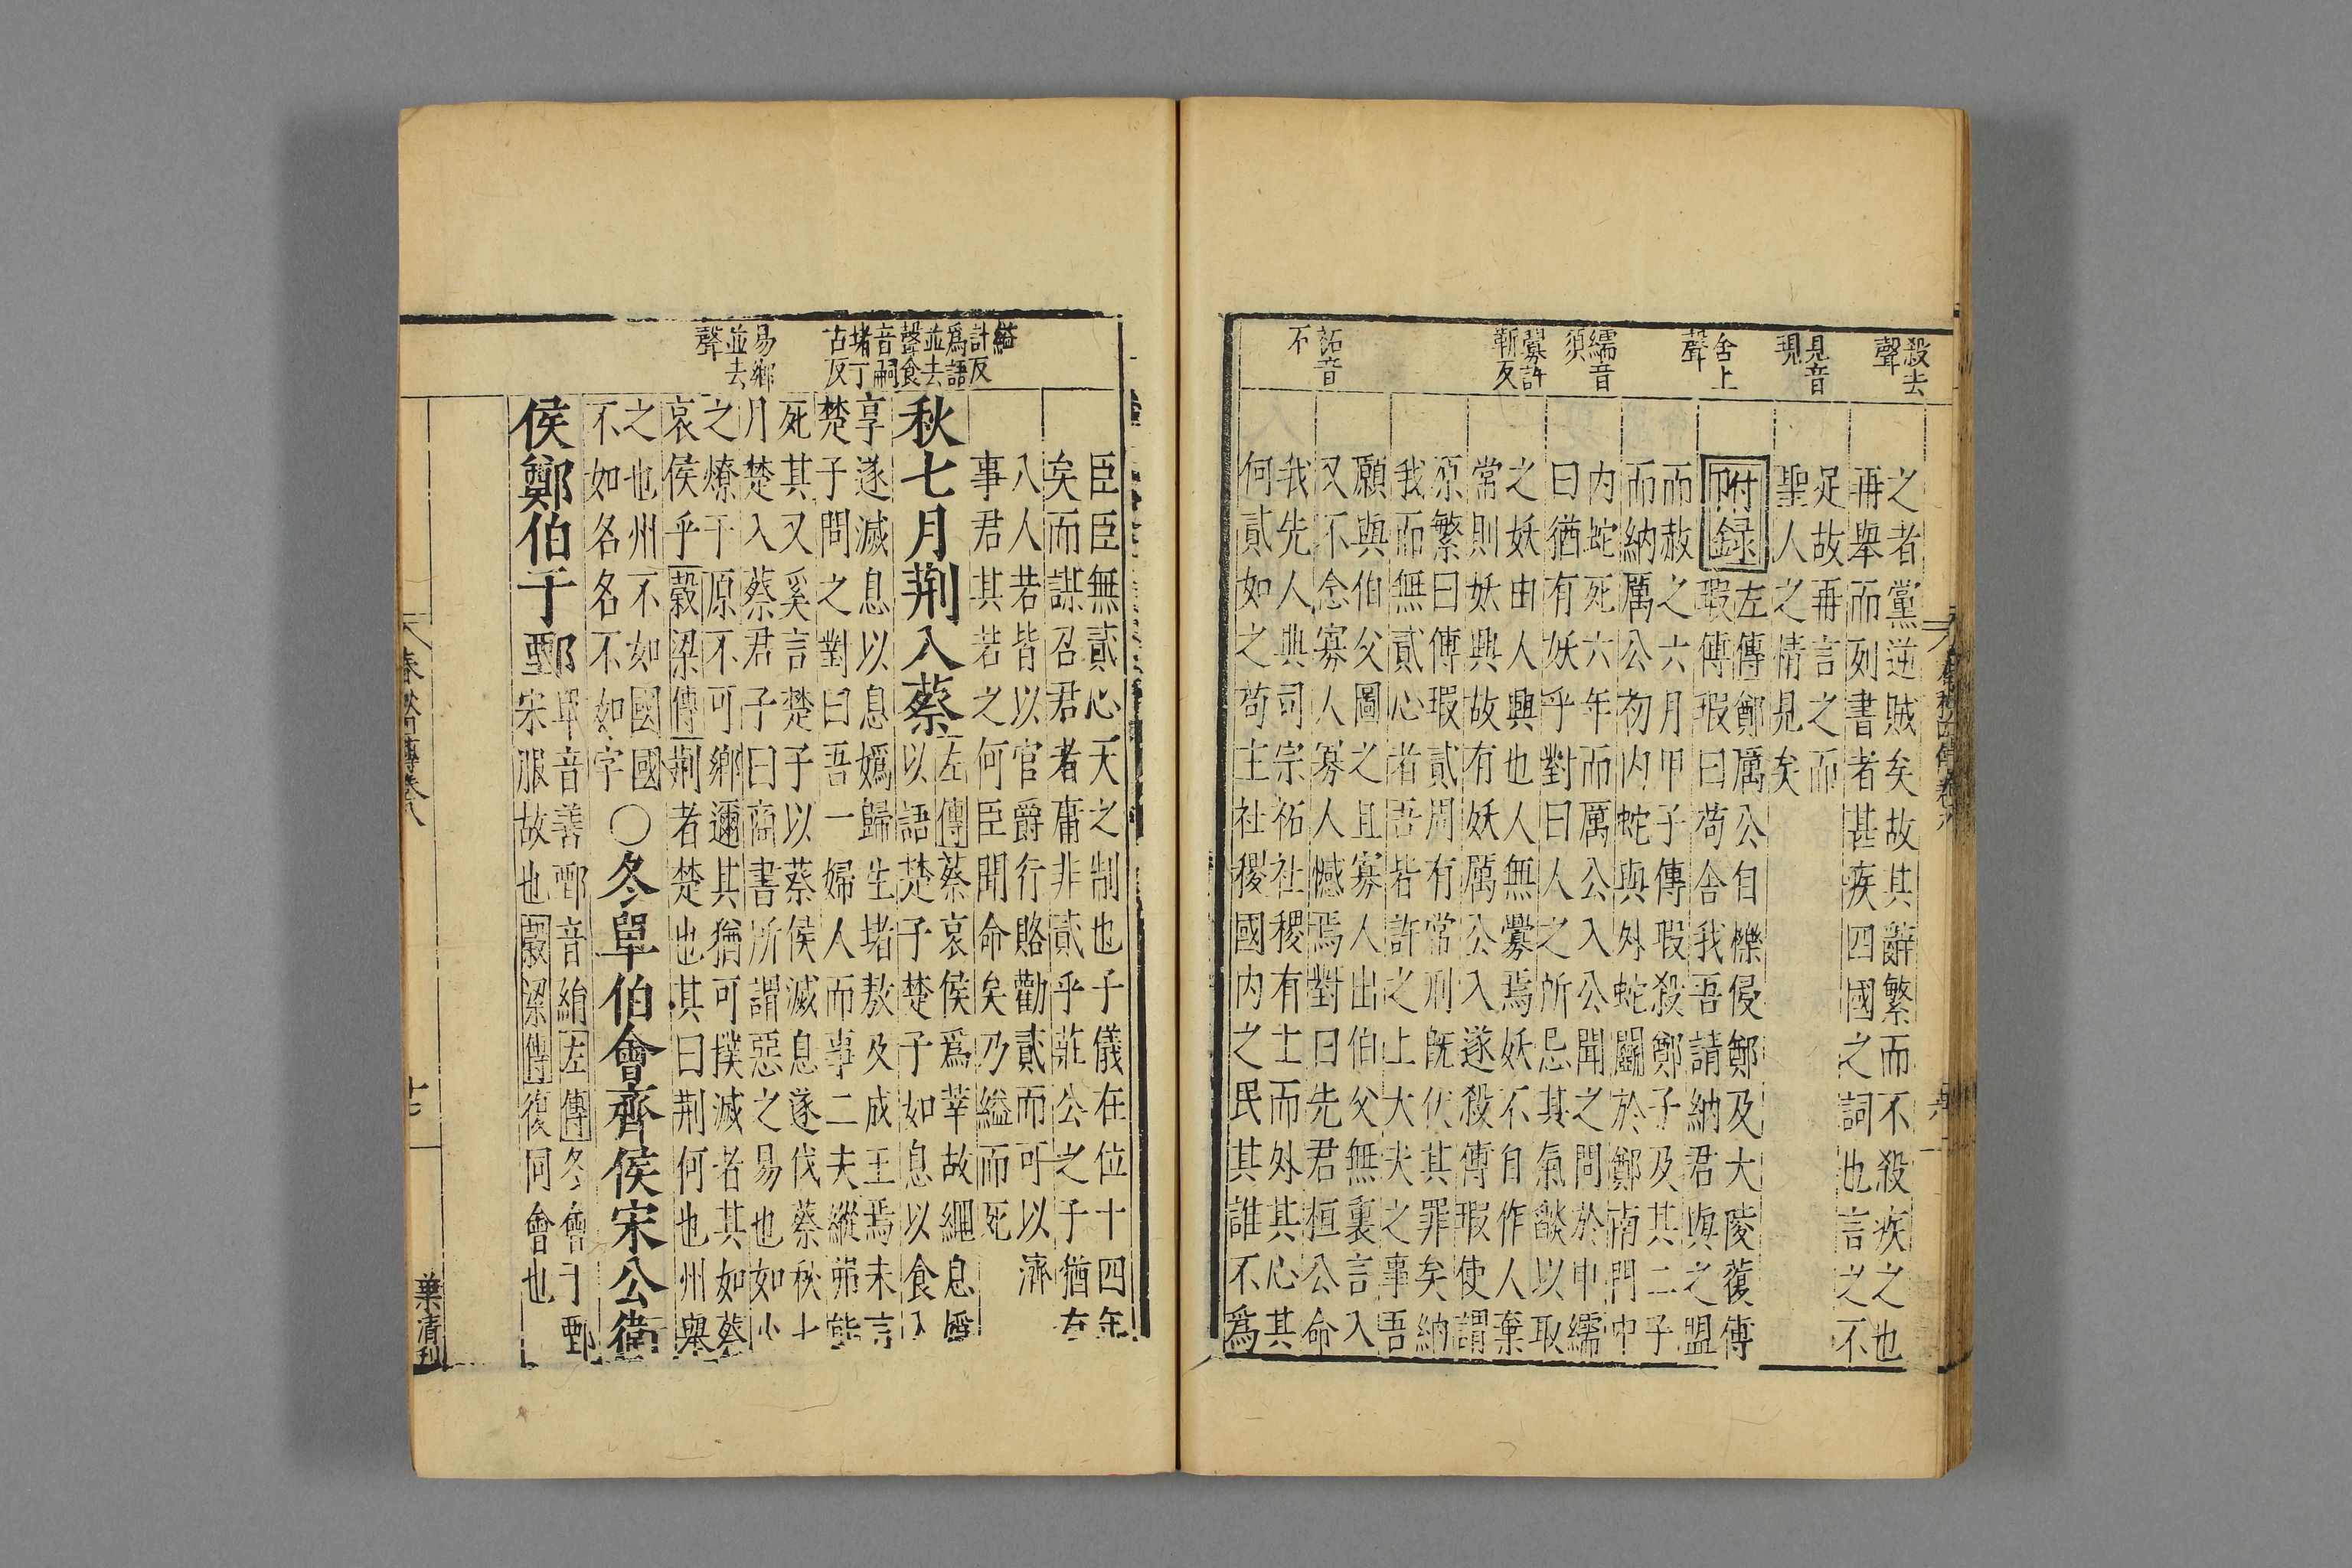 殺去
聲
見音
現
舍上
聲
繻音
須
釁許
靳反
祏音
不
之者黨逆賊矣故其辭繁而不殺疾之也
再舉而列書者甚疾四國之詞也言之不
足故再言之而
聖人之情見矣
附録
左傳鄭厲公自櫟侵鄭及大陵獲傅
瑕傅瑕曰苟舍我吾請納君與之盟
而赦之六月甲子傅瑕殺鄭子及其二子
而納厲公初内蛇與外蛇鬬於鄭南門中
内蛇死六年而厲公入公聞之問於申繻
曰猶有妖乎對曰人之所忌其氣燄以取
之妖由人興也人無釁焉妖不自作人棄
常則妖興故有妖厲公入遂殺傅瑕使謂
原繁曰傅瑕貳周有常刑旣伏其罪矣納
我而無貳心者吾皆許之上大夫之事吾
願與伯父圖之且寡人出伯父無裏言入
又不念寡人寡人憾焉對曰先君桓公命
我先人典司宗祏社稷有主而外其心其
何貳如之苟主社稷國内之民其誰不爲
縊
計反
爲語
並去
聲食
音嗣
堵丁
古反
易鄉
並去
聲
臣臣無貳心天之制也子儀在位十四年
矣而謀召君者庸非貳乎莊公之子猶有
八人若皆以官爵行賂勸貳而可以濟
事君其若之何臣聞命矣乃縊而死
秋七月荆入蔡
左傳蔡哀侯爲莘故繩息嬀
以語楚子楚子如息以食入
享遂滅息以息嬀歸生堵敖及成王焉未言
楚子問之對曰吾一婦人而事二夫縱弗能
死其又奚言楚子以蔡侯滅息遂伐蔡秋七
月楚入蔡君子曰商書所謂惡之易也如火
之燎于原不可鄉邇其猶可撲滅者其如蔡
哀侯乎穀梁傳荆者楚也其曰荆何也州舉
之也州不如國國
不如名名不如字
○冬單伯會齊侯宋公衛
侯鄭伯于鄄
單音善鄄音絹左傳冬會于鄄
宋服故也穀梁傳復同會也
春秋四傳卷八
十七
葉清刊